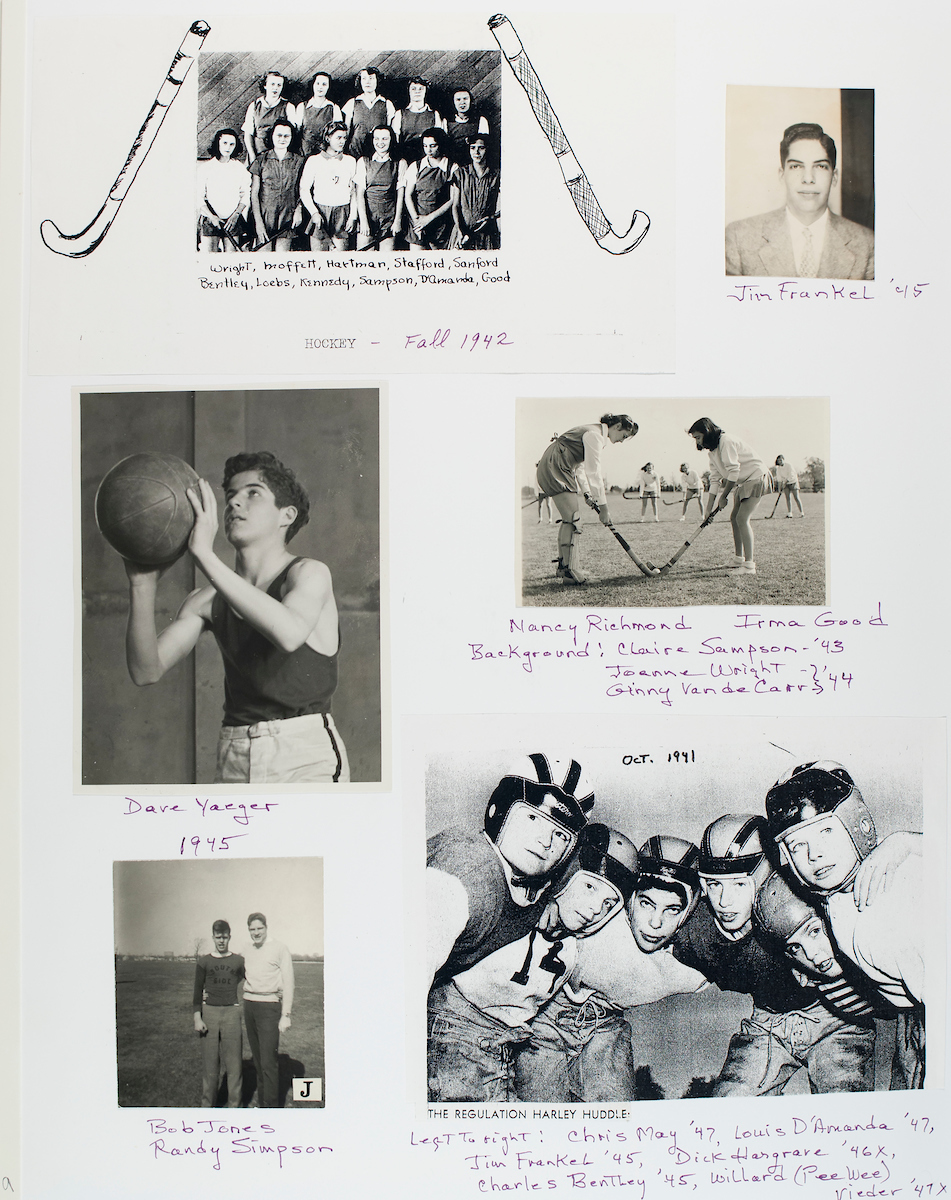 Wright, Moffett, Hartman, Stafford, Sanford
Bentley, Loebs, Kennedy, Sampson, D'Amanda, Good
HOCKEY - Fall 1942
Jim Frankel '45
Nancy Richmond Irma Good
Background: Claire Sampson - '43
Joanne Wright - } '44
Ginny Van de Carr
Dave Yaeger
1945
SIDE
J
Bob Jones
Randy Simpson
OCT. 1941
THE REGULATION HARLEY HUDDLE:
Left To right: Chris May '47, Louis D'Amanda '47,
Jim Frankel '45, Dick Hargrave '46X,
Charles Bentley '45, Willard (Pee Wee)
Vieder '47X
9